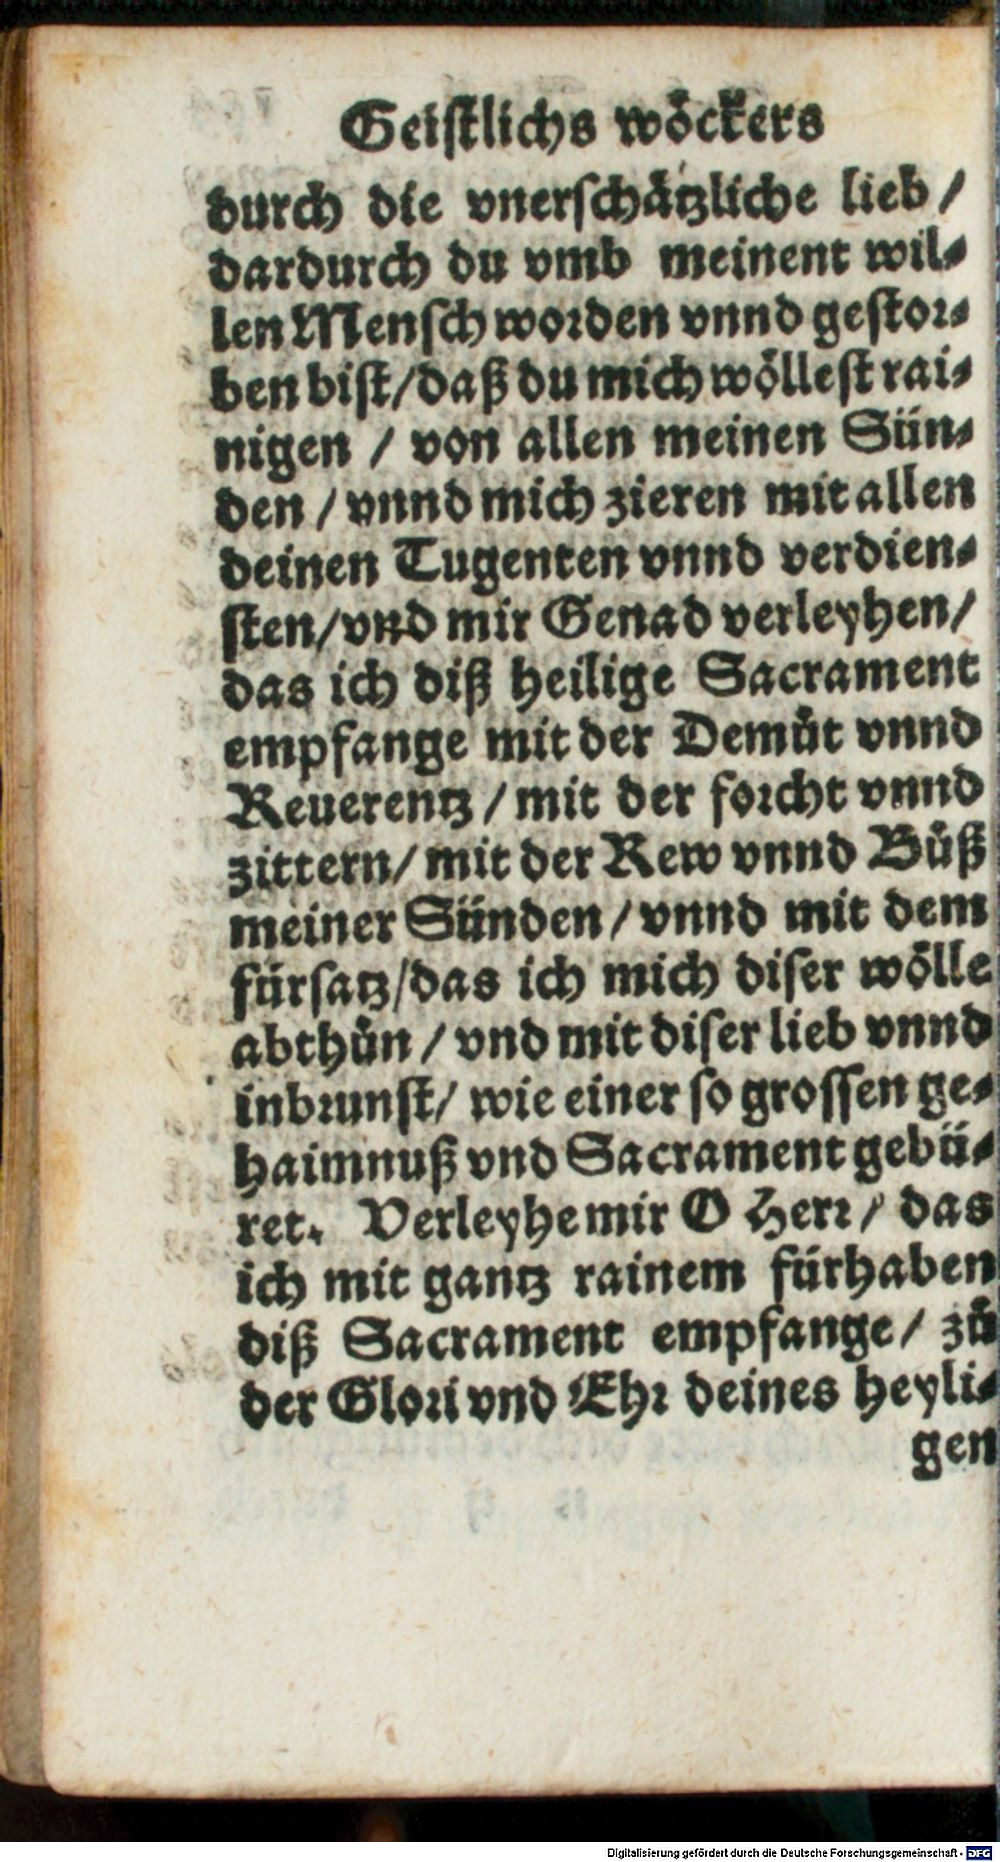 Geiſtlichs wöckers
durch die vnerſchätzliche lieb /
dardurch du vmb meinent wil⸗
len Menſch worden vnnd geſtor⸗
ben biſt / daß du mich wölleſt rai⸗
nigen / von allen meinen Sün⸗
den / vnnd mich zieren mit allen
deinen Tugenten vnnd verdien⸗
ſten / vnd mir Genad verleyhen /
das ich diß heilige Sacrament
empfange mit der Demůt vnnd
Reuerentz / mit der forcht vnnd
zittern / mit der Rew vnnd Bůß
meiner Sünden / vnnd mit dem
fürſatz / das ich mich diſer wölle
abthůn / vnd mit diſer lieb vnnd
inbrunſt / wie einer ſo groſſen ge⸗
haimnuß vnd Sacrament gebü⸗
ret. Verleyhe mir O Herr / das
ich mit gantz rainem fürhaben
diß Sacrament empfange / zů
der Glori vnd Ehr deines heyli⸗
gen
Digitalisierung gefördert durch die Deutsche Forschungsgemeinschaft - DFG